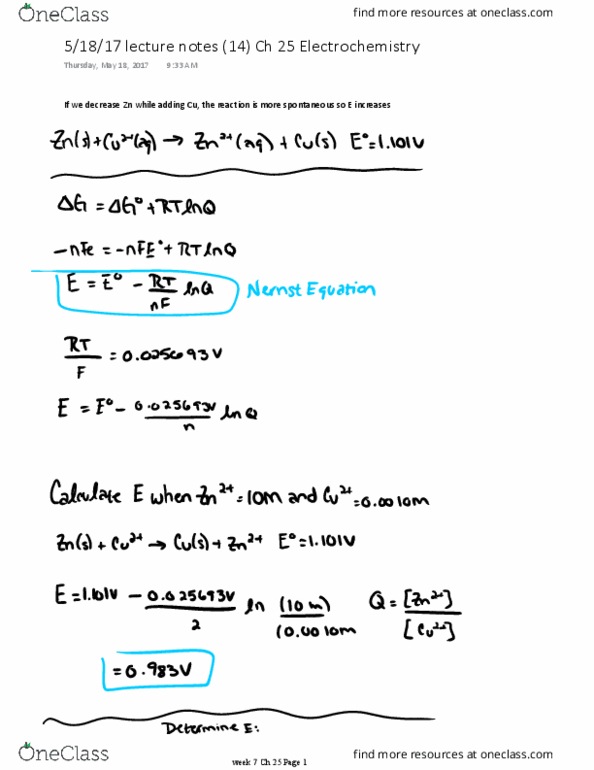 OneClass
find more resources at oneclass.com
5/18/17 lecture notes (14) Ch 25 Electrochemistry
Thursday, May 18, 2017 9:33 AM
If we decrease Zn while adding Cu, the reaction is more spontaneous so E increases
Zn(s)+Cu²⁺(aq) → Zn²⁺(aq) + Cu(s) E°=1.101V
ΔG = ΔG°+RTlnQ
-nFe = -nFE°+RTlnQ
E = E° - RT/nF lnQ Nernst Equation
RT/F = 0.025693V
E = E° - 0.025693V/n lnQ
Calculate E when Zn²⁺=10M and Cu²⁺=0.0010M
Zn(s) + Cu²⁺ → Cu(s) + Zn²⁺ E°=1.101V
E=1.101V - 0.025693V/2 ln (10m)/(0.0010m Q = [Zn²⁺]/[Cu²⁺]
=0.983V
Determine E:
OneClass
week 7 Ch 25 Page 1
find more resources at oneclass.com